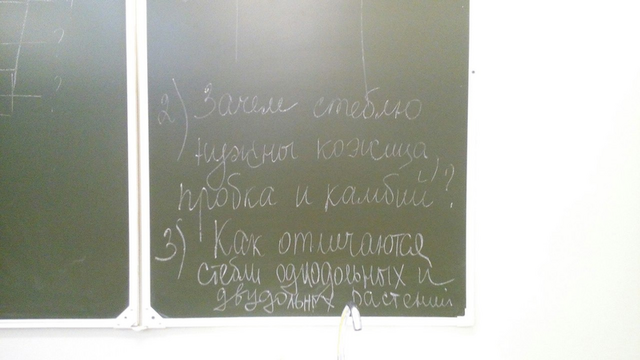 2) Зачем стеблю
нужны кожица,
пробка и камбий?
3) Как отличаются
стебли однодольных и
двудольных растений